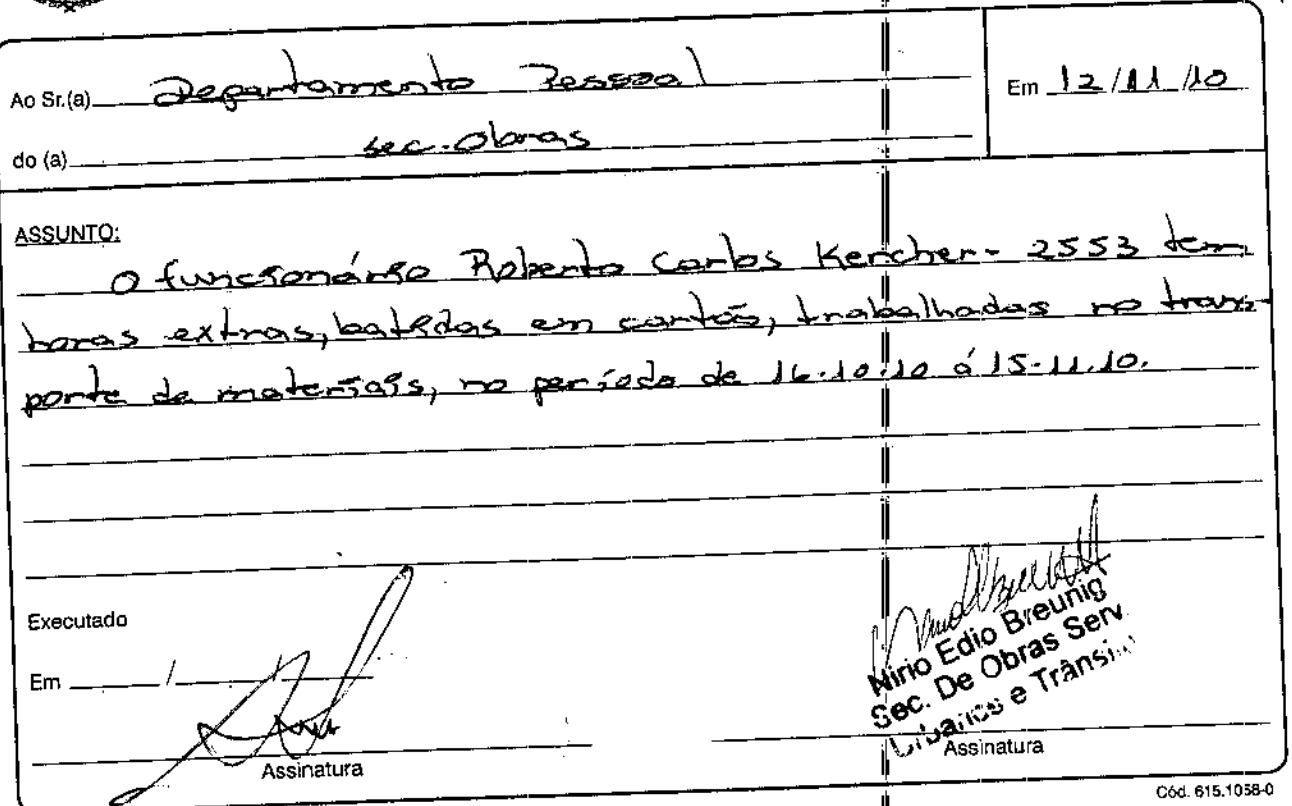 Ao Sr.(a) Departamento Pessoal
Em 12/11/10
do (a) sec. Obras
ASSUNTO:
O funcionário Roberto Carlos Kercher - 2553 tem
horas extras, batidas em cartão, trabalhadas no trans-
porte de materiais, no período de 16.10.10 á 15.11.10.
Executado
Em / /
Nirio Edio Breunig
Sec. De Obras Serv.
Urbanos e Trânsi
Assinatura
Assinatura
Cód. 615.1058-0